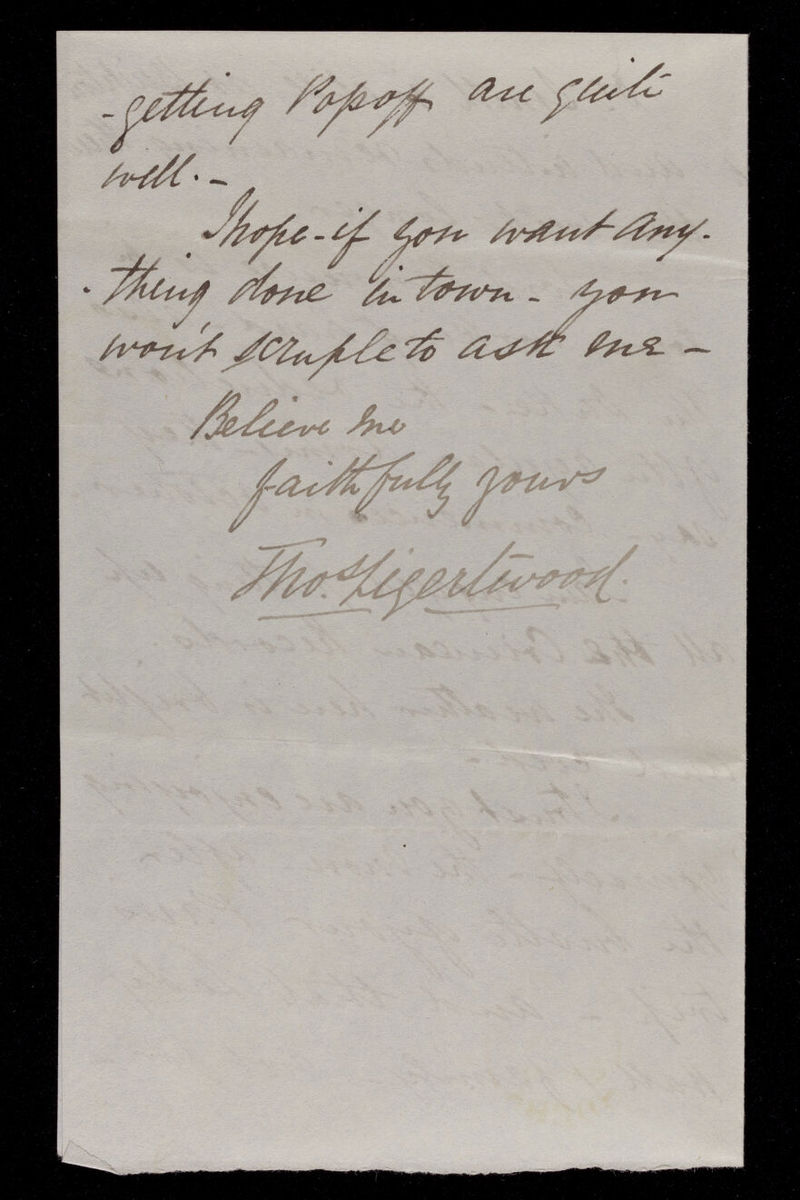 -getting Popoff are quite
well. -
I hope - if you want any-
-thing done in town - you
won't scruple to ask me -
Believe me
faithfully yours
Thos. Ligertwood.